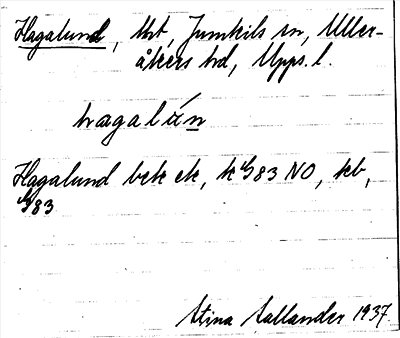 Hagalund, tht, Jumkils sn, Uller-
åkers hd, Upps. l.
hagalún
Hagalund bek ek, k G83 NO, kb,
G83
Stina Sallander 1937.